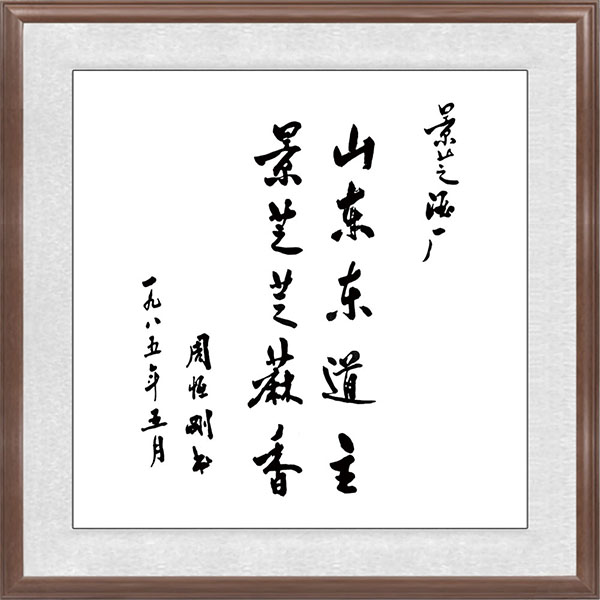 景芝酒厂
山東东道主
景芝芝蔴香
周恒刚书
一九八五年五月